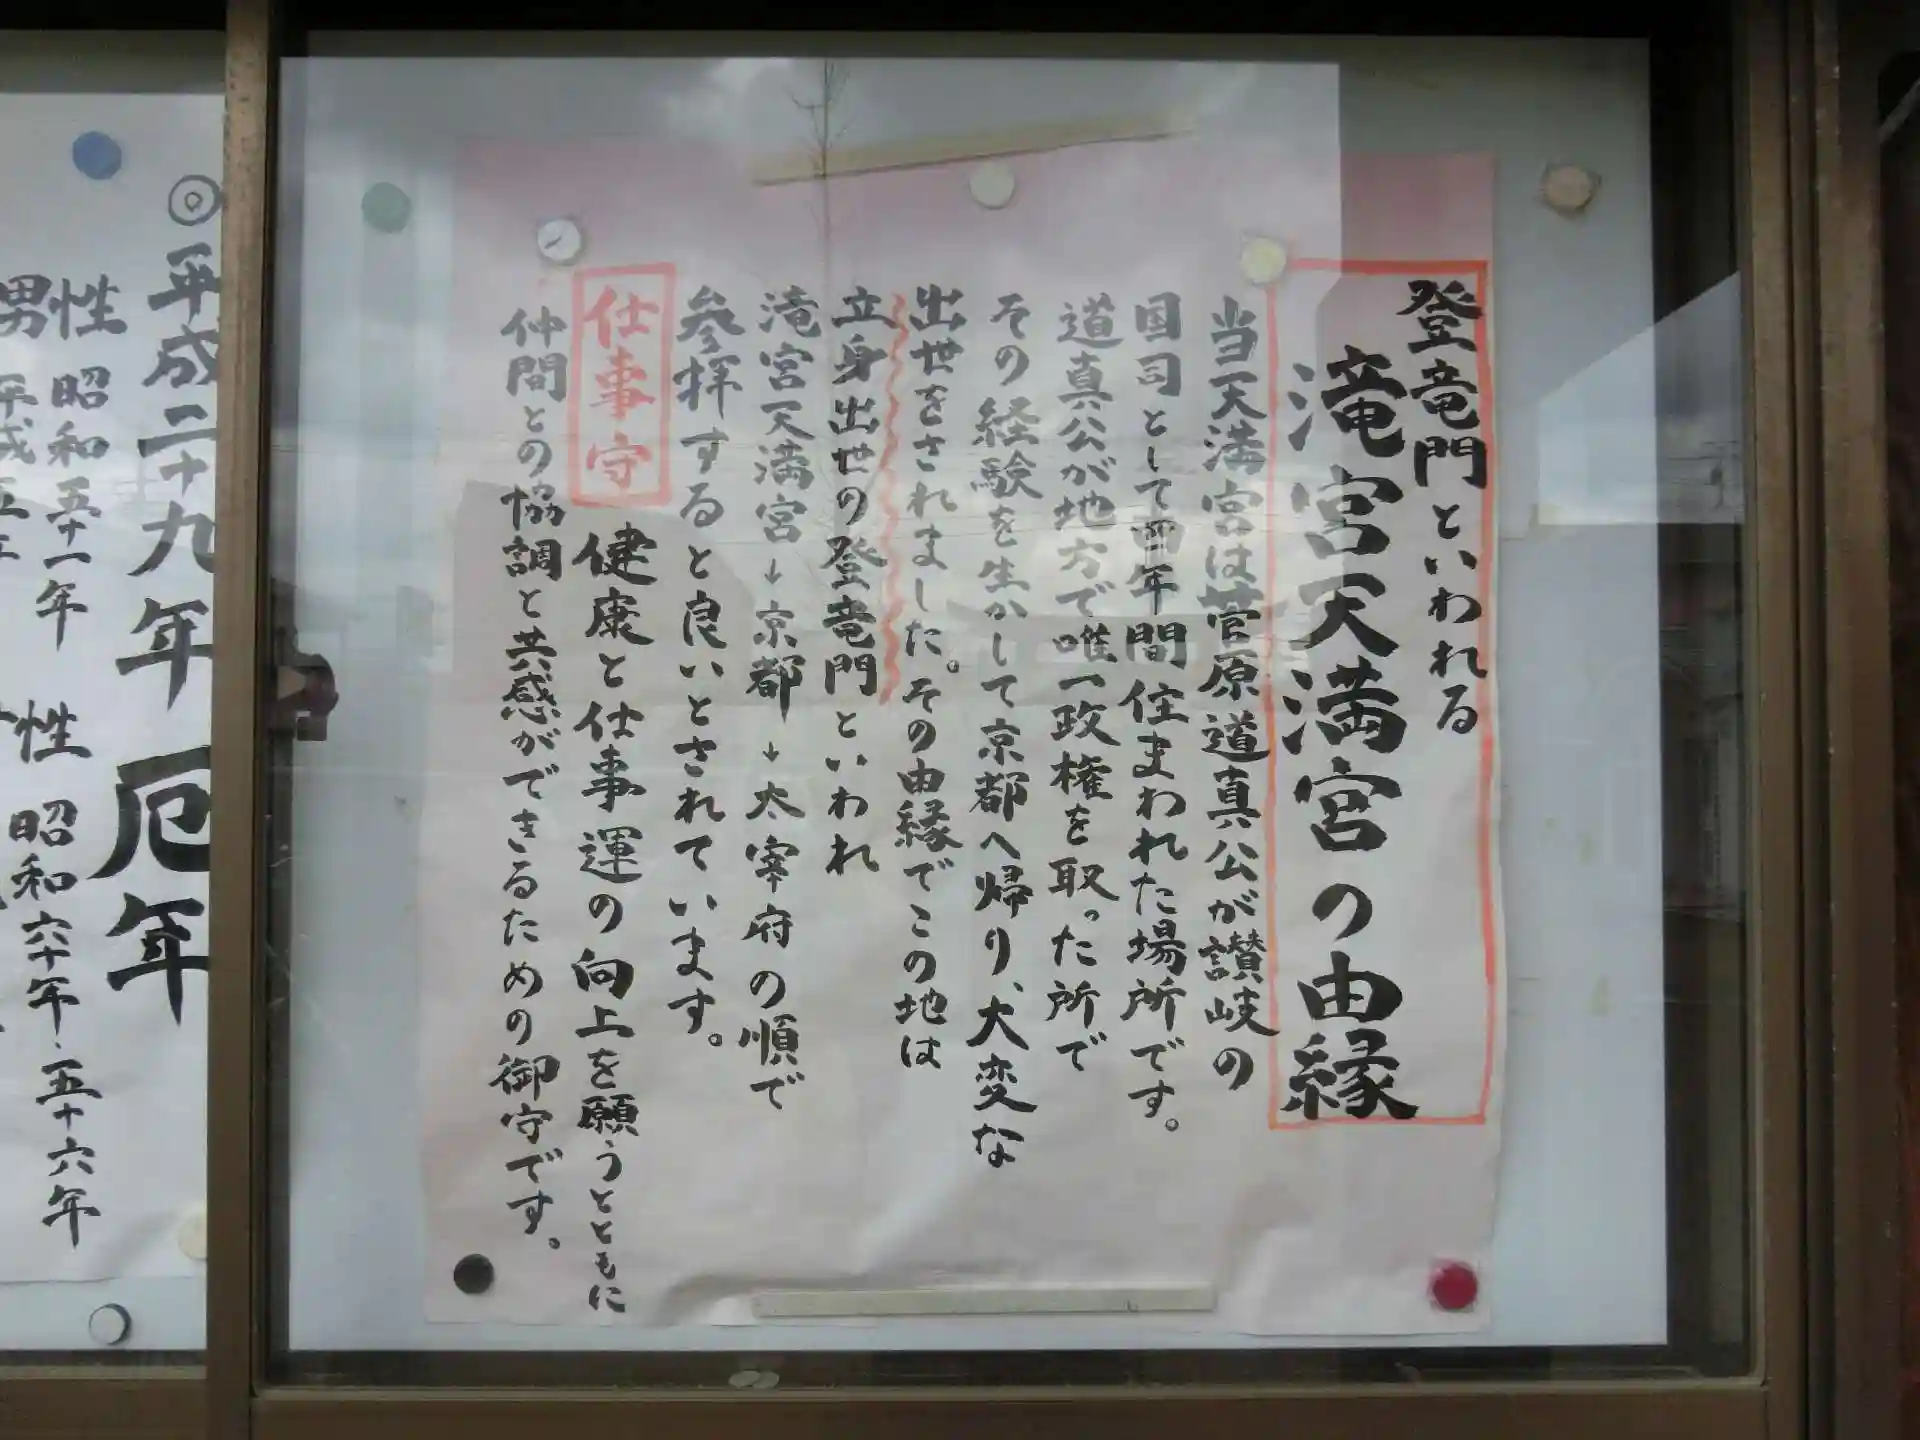 登竜門といわれる
滝宮天満宮の由縁
当天満宮は菅原道真公が讃岐の
国司として四年間住まわれた場所です。
道真公が地方で唯一政権を取った所で
その経験を生かして京都へ帰り、大変な
出世をされました。その由縁でこの地は
立身出世の登竜門といわれ
滝宮天満宮→京都→太宰府の順で
参拝すると良いとされています。
仕事守
健康と仕事運の向上を願うとともに
仲間との協調と共感ができるための御守です。
◎平成二十九年 厄年
性 昭和五十一年
性 昭和六十年・五十六年
男